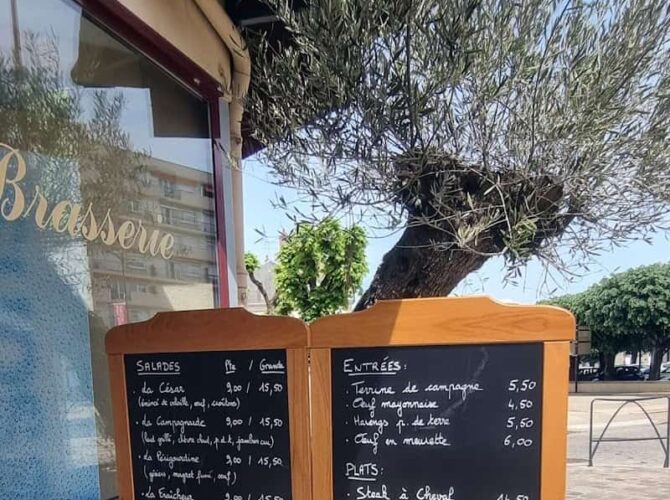 Brasserie
SALADES Pte / Grande
. La César 9,00 / 15,50
(émincé de volaille, œuf, croûtons)
. La Campagnarde 9,00 / 15,50
. La Périgourdine 9,00 / 15,50
(gésiers, magret fumé, œuf)
. La Fraîcheur 9,00 / 15,50
ENTRÉES:
. Terrine de campagne 5,50
. Œuf mayonnaise 4,50
. Harengs p. de terre 5,50
. Œuf en meurette 6,00
PLATS:
. Steak à Cheval 14,50